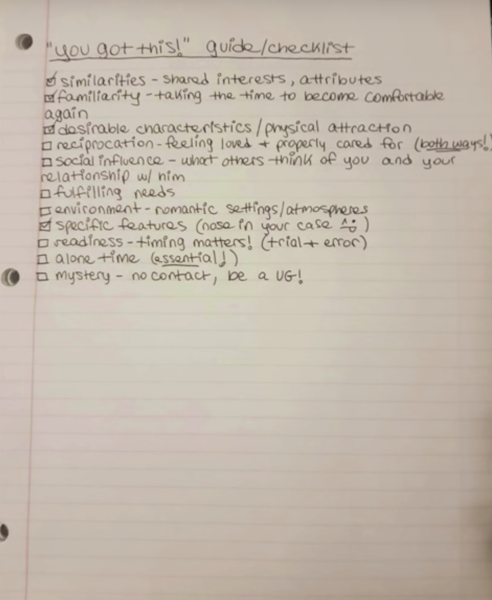 "you got this!" guide/checklist
☑ similarities - shared interests, attributes
☑ familiarity - taking the time to become comfortable
again
☑ desirable characteristics/physical attraction
☐ reciprocation - feeling loved + properly cared for (both ways!)
☐ social influence - what others think of you and your
relationship w/ him
☐ fulfilling needs
☐ environment - romantic settings/atmospheres
☑ specific features (nose in your case ^^)
☐ readiness - timing matters! (trial + error)
☐ alone time (essential!)
☐ mystery - no contact, be a UG!